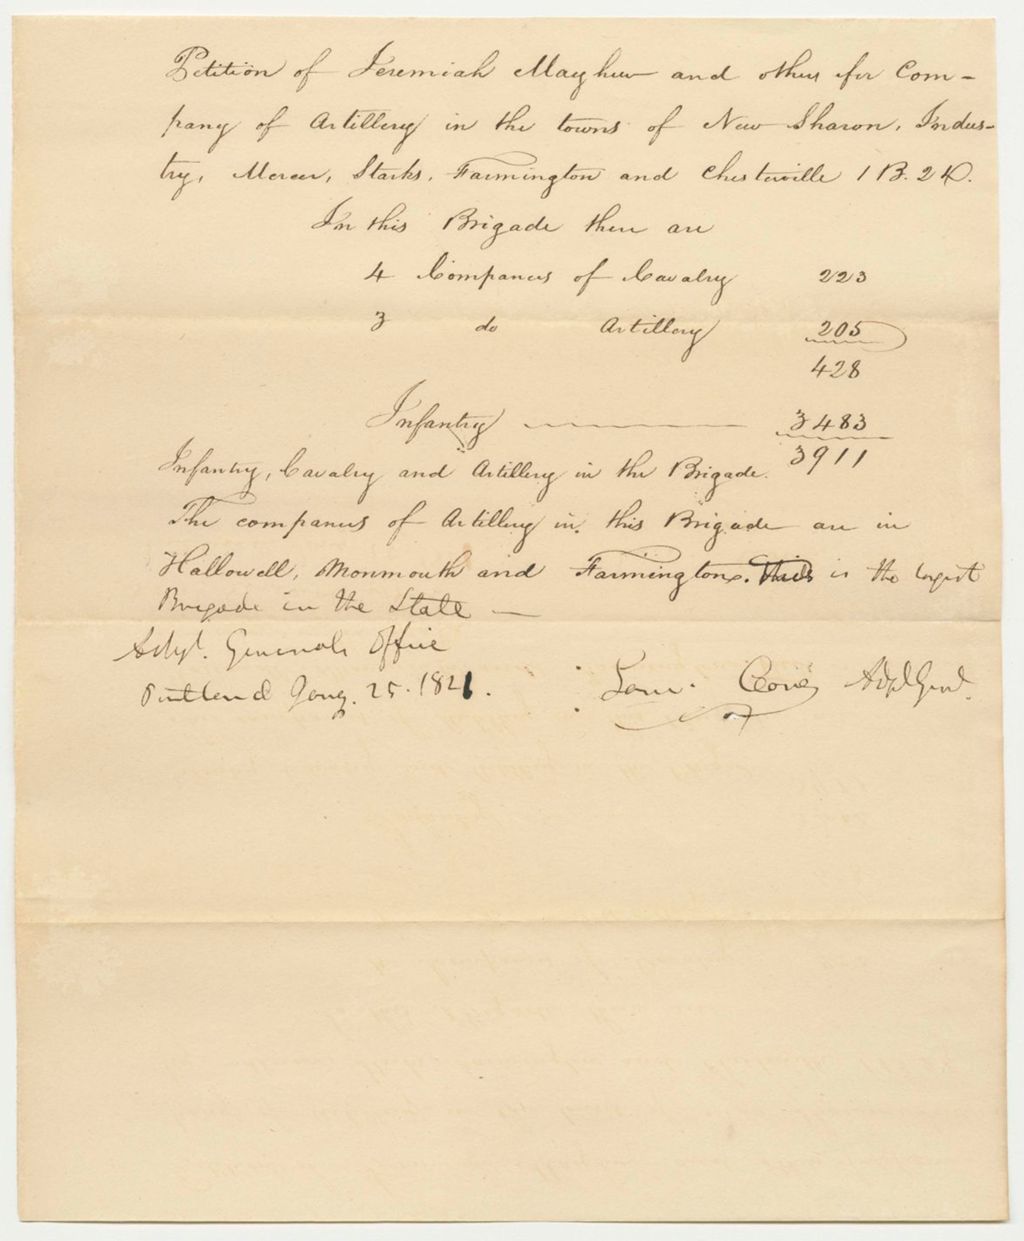 Petition of Jeremiah Mayhew and others for Com-
pany of Artillery in the towns of New Sharon, Indus-
try, Mercer, Starks, Farmington and Chesterville 1 B. 2 D.
In this Brigade there are
4 Companies of Cavalry 223
3 do Artillery 205
428
Infantry 3483
3911
Infantry, Cavalry and Artillery in the Brigade.
The companies of Artillery in this Brigade are in
Hallowell, Monmouth and Farmington. This is the largest
Brigade in the State —
Adjt. Generals Office
Portland Jany. 25. 1821.
Saml. Cony Adjt Genl.